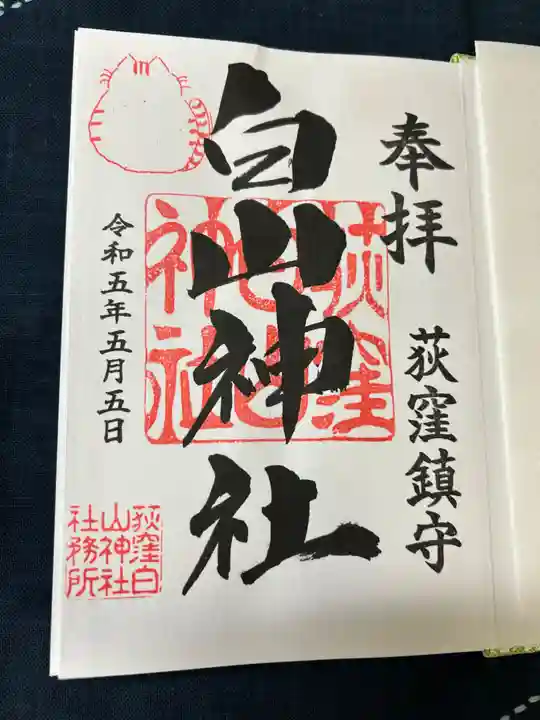 奉拝
荻窪鎮守
白山神社
荻窪白山神社
令和五年五月五日
荻窪白
山神社
社務所